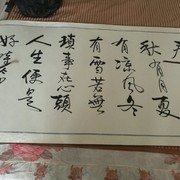 秋有月夏
有涼風冬
有雪若無
瑣事在心頭
人生便是
好時